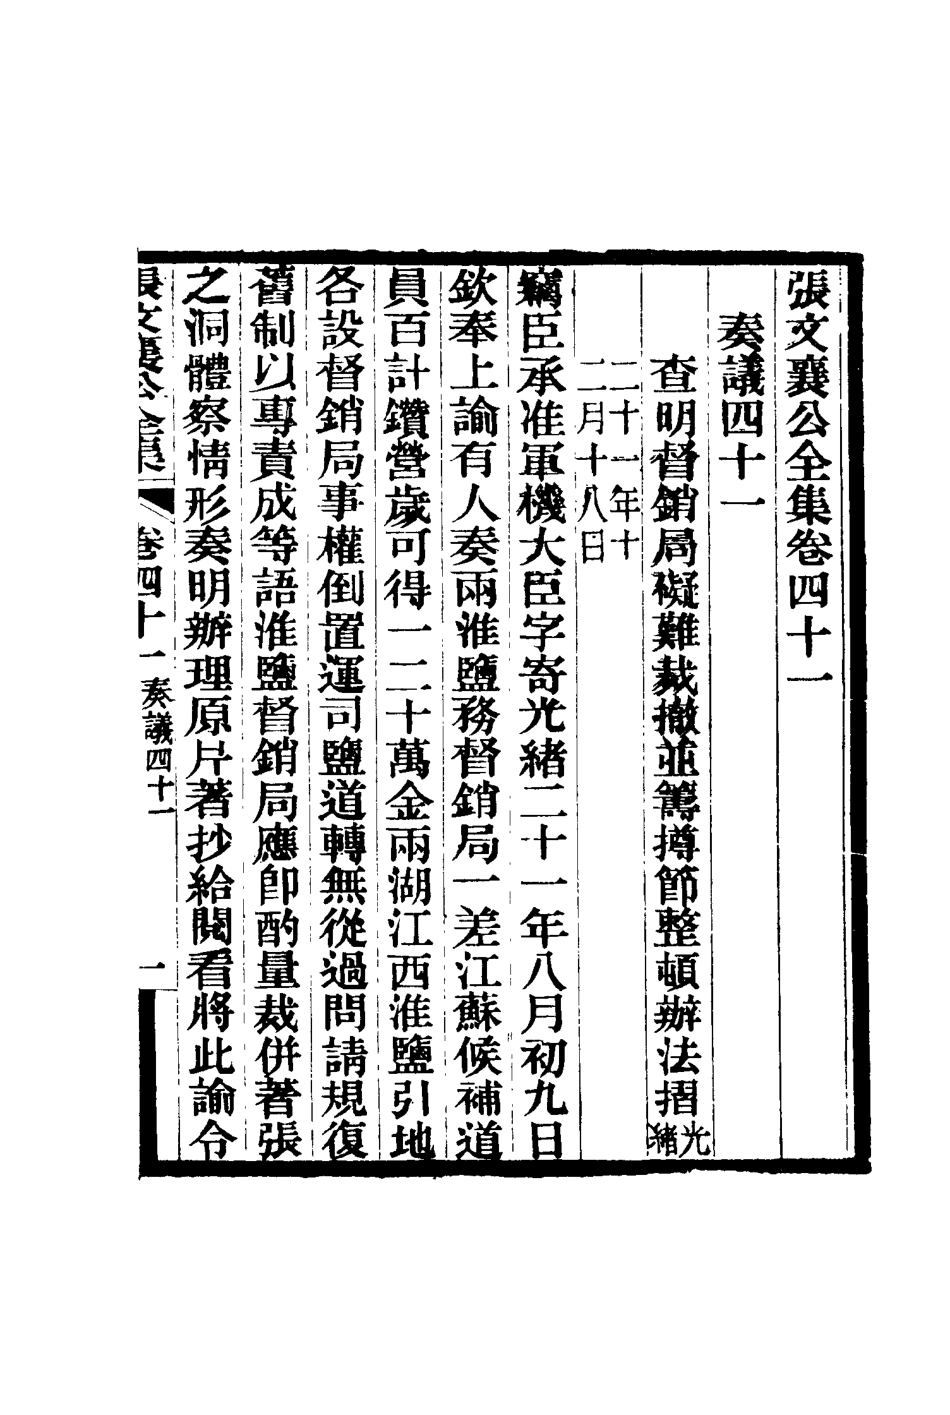 張文襄公全集卷四十一
奏議四十一
查明督銷局礙難裁撤並籌撙節整頓辦法摺光緒
二十一年十
二月十八日
竊臣承准軍機大臣字寄光緒二十一年八月初九日
欽奉上諭有人奏兩淮鹽務督銷局一差江蘇候補道
員百計鑽營歲可得一二十萬金兩湖江西淮鹽引地
各設督銷局事權倒置運司鹽道轉無從過問請規復
舊制以專責成等語淮鹽督銷局應卽酌量裁併著張
之洞體察情形奏明辦理原片著抄給閱看將此諭令
張文襄公全集 卷四十一 奏議四十一 一